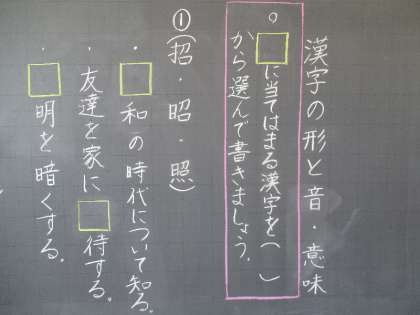 漢字の形と音・意味
。□に当てはまる漢字を(　)
から選んで書きましょう。
①(招・昭・照)
・□和の時代について知る。
・友達を家に□待する。
・□明を暗くする。